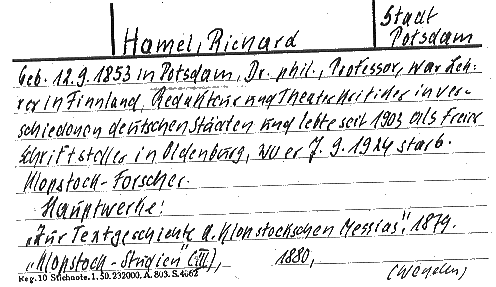 Stadt
Hamel, Richard Potsdam
Geb. 12.9.1853 in Potsdam, Dr. phil., Professor, war Leh-
rer in Finnland, Redakteur und Theaterkritiker in ver-
schiedenen deutschen Städten und lebte seit 1903 als freier
Schriftsteller in Oldenburg, wo er 7.9.1924 starb.
Klopstock-Forscher.
Hauptwerke:
„Zur Textgeschichte d. Klopstockschen Messias", 1879.
„Klopstock-Studien" (III), 1880,
Keg. 10 Stichnote. 1. 50. 232000. A. 803. S. 4662